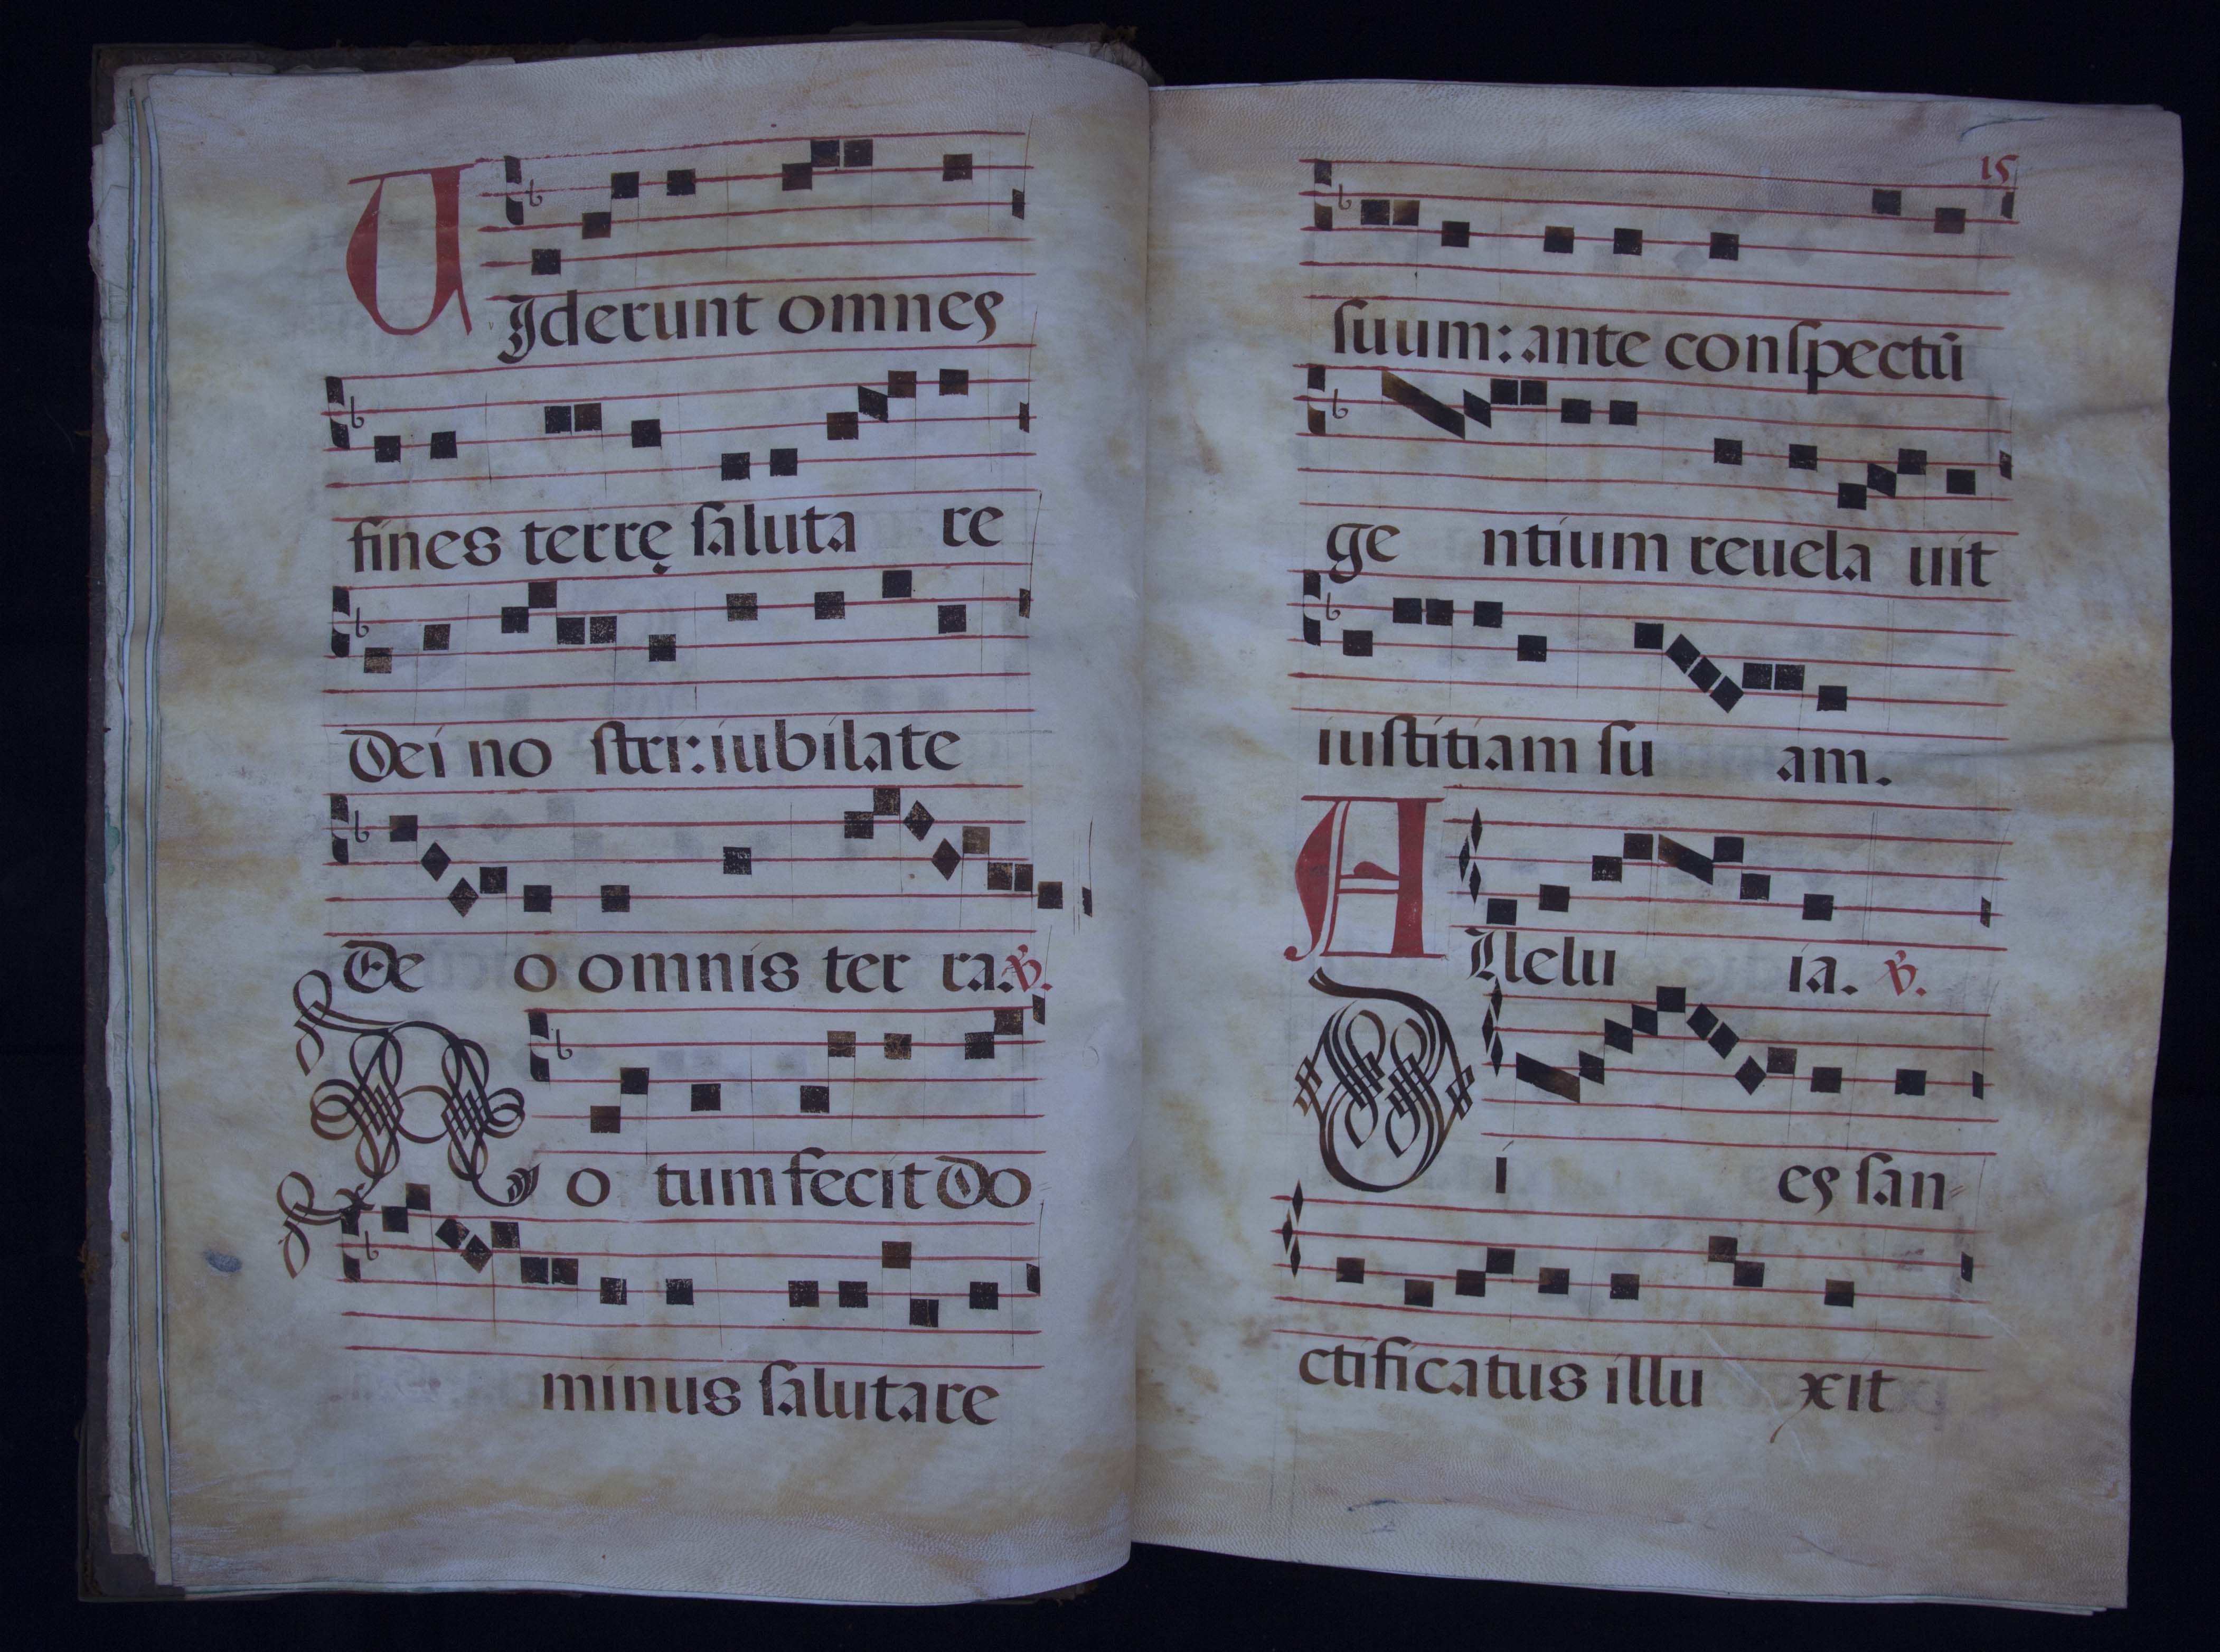 UJderunt omnes
fines terrę ſaluta re
Dei no ſtri: iubilate
De o omnis ter ra. ℣.
No tum fecit Do
minus ſalutare
15
ſuum: ante conſpectū
ge ntium reuela uit
iuſtitiam ſu am.
Allelu ia. ℣.
Di es ſan-
ctificatus illu xit